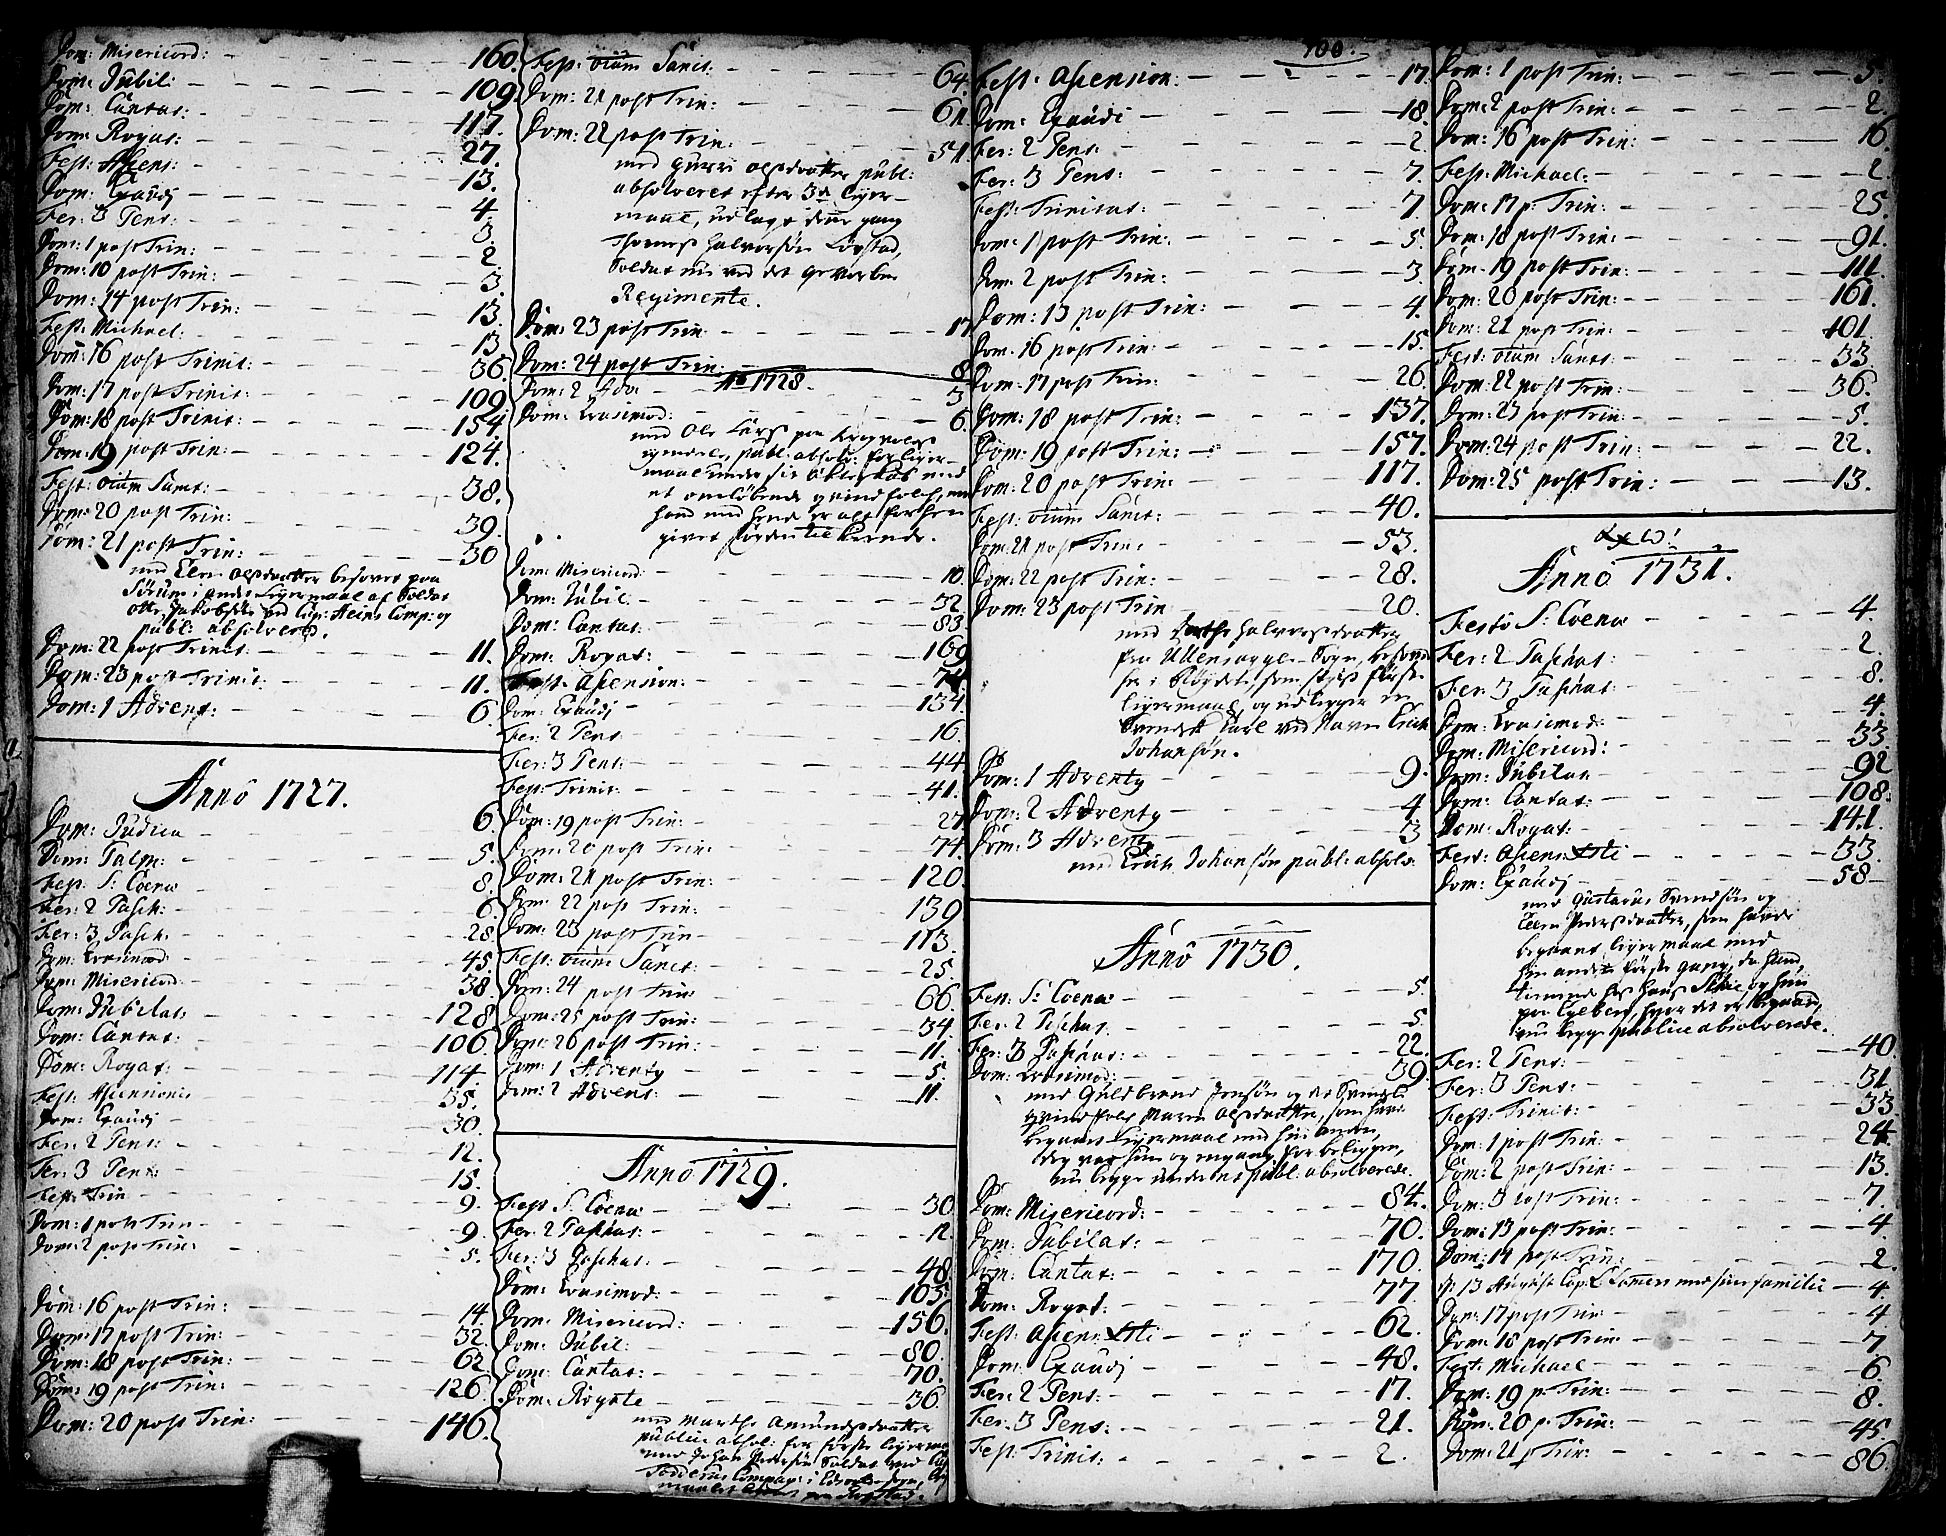 Dom: Misericord: 160.
Dom: Jubil: 109.
Dom: Cantat: 117.
Dom: Rogat: 27.
Fest: Ascens: 13.
Dom: Exaudj 4.
Fer: 3 Pent: 3.
Dom: 1 post Trin: 2.
Dom: 10 post Trin: 3.
Dom: 14 post Trin: 13.
Fest: Michael: 13.
Dom: 16 post Trinit: 36.
Dom: 17 post Trinit: 109.
Dom: 18 post Trinit: 154.
Dom: 19 post Trin: 124.
Fest: oium Sanct: 38.
Dom: 20 post Trin: 39.
Dom: 21 post Trin: 30
med Elen Olsdaatter besovet paa
Sörum i andet Leyermaal af Soldat
Otte Jakobsen ved Cap: Heins Comp: og
publ: absolvered.
Dom: 22 post Trinit: 11.
Dom: 23 post Trinit: 11.
Dom: 1 Advent: 6.
Anno 1727.
Dom: Judica 6.
Dom: Palm: 5.
Fest: S: Coenæ 8.
Fer: 2 Pasch: 6.
Fer: 3 Pasch. 28.
Dom: Qvasimod: 45.
Dom: Misericord: 38.
Dom: Jubilat: 128
Dom: Cantat: 106.
Dom: Rogat: 114.
Fest: Ascensionis 35.
Dom: Exaudj 30.
Fer: 2 Pent: 12.
Fer: 3 Pent: 15.
Fest: Trin 9.
Dom: 1 post Trin 9.
Dom: 2 post Trin: 5.
Dom: 16 post Trin: 14.
Dom: 17 post Trin: 32.
Dom: 18 post Trin: 62
Dom: 19 post Trin: 126
Dom: 20 post Trin: 146.
Fest: oium Sanct: 64.
Dom: 21 post Trin: 61.
Dom: 22 post Trin: 51.
med Olsdaatter publ:
absolveret efter 3die Leyer-
maal, udlagt denne gang
Halvorsön Lövstad,
Soldat nu ved det gevorben
Regimente.
Dom: 23 post Trin 17
Dom: 24 post Trin: 8.
Ao 1728.
Dom: 2 Adv: 3
Dom: Qvasimod: 6.
med Ole Lars paa
publ: absolv: for Leyer-
maal under sit Ækteskab med
et omlöbende qvindfolch, men
hand med er alt forhen
givet til kiende.
Dom: Misericord: 10.
Dom: Jubil: 32.
Dom: Cantat: 83
Dom: Rogat: 169
Fest: Ascension: 74
Dom: Exaudj 134.
Fer: 2 Pent 16.
Fer: 3 Pent: 44
Fest: Trinit: 41.
Dom: 19 post Trin: 27
Dom: 20 post Trin: 74.
Dom: 21 post Trin: 120.
Dom: 22 post Trin: 139
Dom: 23 post Trin 113.
Fest: oium Sanct: 25.
Dom: 24 post Trin 66.
Dom: 25 post Trin: 34
Dom: 26 post Trin: 11.
Dom: 1 Adventy 5.
Dom: 2 Advent: 11.
Anno 1729.
Fest S: Coenæ 30
Fer: 2 Paschat: 12.
Fer: 3 Paschat: 48.
Dom: Qvasimod: 103.
Dom: Misericord: 156.
Dom: Jubil: 80.
Dom: Cantat: 70.
Dom: Rogate 36.
med Marthe Amundsdaatter
publice absol: for förste Leyerm:
med Johan Pedersön Soldat ved
Compag: i sogn,
100.
Fest: Ascension: 17.
Dom: Exaudi 18.
Fer: 2 Pent: 2
Fer: 3 Pent: 7.
Fest: Trinitat: 7
Dom: 1 post Trin: 5.
Dom: 2 post Trin: 3.
Dom: 13 post Trin: 4.
Dom: 16 post Trin: 15.
Dom: 17 post Trin: 26.
Dom: 18 post Trin: 137.
Dom: 19 post Trin: 157.
Dom: 20 post Trin: 117.
Fest: oium Sanct: 40.
Dom: 21 post Trin: 53.
Dom: 22 post Trin: 28.
Dom: 23 post Trin 20.
med Halvorsdaatter
fra Ullensagger Sogn,
som sit förste
Leyermaal, og udlegger en
Svensk Karl ved Navn Erich
Johansön.
Dom: 1 Adventy 9.
Dom: 2 Adventy 4
Dom: 3 Adventy 3
med Erich Johansön publ: absolv.
Anno 1730.
Fest: S: Coenæ 5.
Fer: 2 Paschat. 5.
Fer: 3 Paschat: 22.
Dom: Qvasimod: 39.
med Guldbrand Jensön og det
qvindfolch Maren Olsdaatter, som havde
begaaet Leyermaal med hin anden,
dog var hun og engang for beligget,
nu begge publ: absolverede.
Dom: Misericord: 84.
Dom: Jubilat: 70.
Dom: Cantat: 170.
Dom: Rogat: 77.
Fest: Ascens: Xsti 62.
Dom: Exaudj 48.
Fer: 2 Pent: 17.
Fer: 3 Pent: 21.
Fest: Trinit: 2.
Dom: 1 post Trin: 5.
Dom: 2 post Trin: 2.
Dom: 16 post Trin: 16.
Fest: Michael: 2.
Dom: 17 p: Trin: 25.
Dom: 18 post Trin: 91.
Dom: 19 post Trin: 111.
Dom: 20 post Trin: 161.
Dom: 21 post Trin: 101.
Fest: oium Sanct: 33
Dom: 22 post Trin: 36.
Dom: 23 post Trin: 5.
Dom: 24 post Trin: 22.
Dom: 25 post Trin: 13.
Anno 1731.
Festo S: Coenæ 4.
Fer: 2 Paschat: 2.
Fer: 3 Paschat: 8.
Dom: Qvasimod: 4.
Dom: Misericord: 33
Dom: Jubilat 92
Dom: Cantat: 108.
Dom: Rogat: 141.
Fest: Ascens: Xsti 33
Dom: Exaudj 58
med Gustavus Svendsön og
Elen Pedersdaatter, som havde
begaaet Leyermaal med
hin anden förste Gang, da hand
tiennede hos Hans og hun
paa hvor det er begaaet,
nu begge publice absolverede.
Fer: 2 Pent: 40.
Fer: 3 Pent: 31.
Fest: Trinit: 33
Dom: 1 post Trin: 24.
Dom: 2 post Trin: 13.
Dom: 3 post Trin: 7.
Dom: 13 post Trin: 4.
Dom: 14 post Trin: 2.
p: 13 August Cap: med sin familie 4.
Dom: 17 post Trin 4
Dom: 18 post Trin: 7
Fest: Michael 6.
Dom: 19 p: Trin: 8.
Dom: 20 p: Trin: 45.
Dom: 21 p Trin: 86.